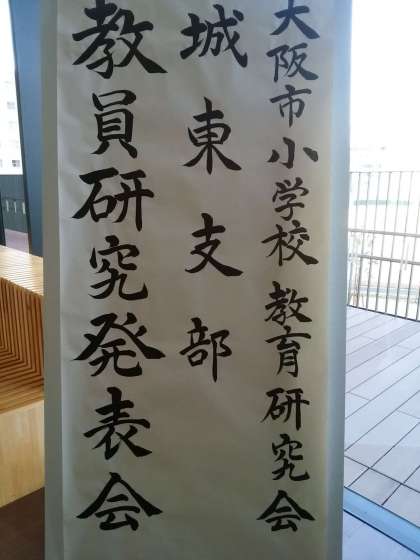 大阪市小学校教育研究会
城東支部
教員研究発表会